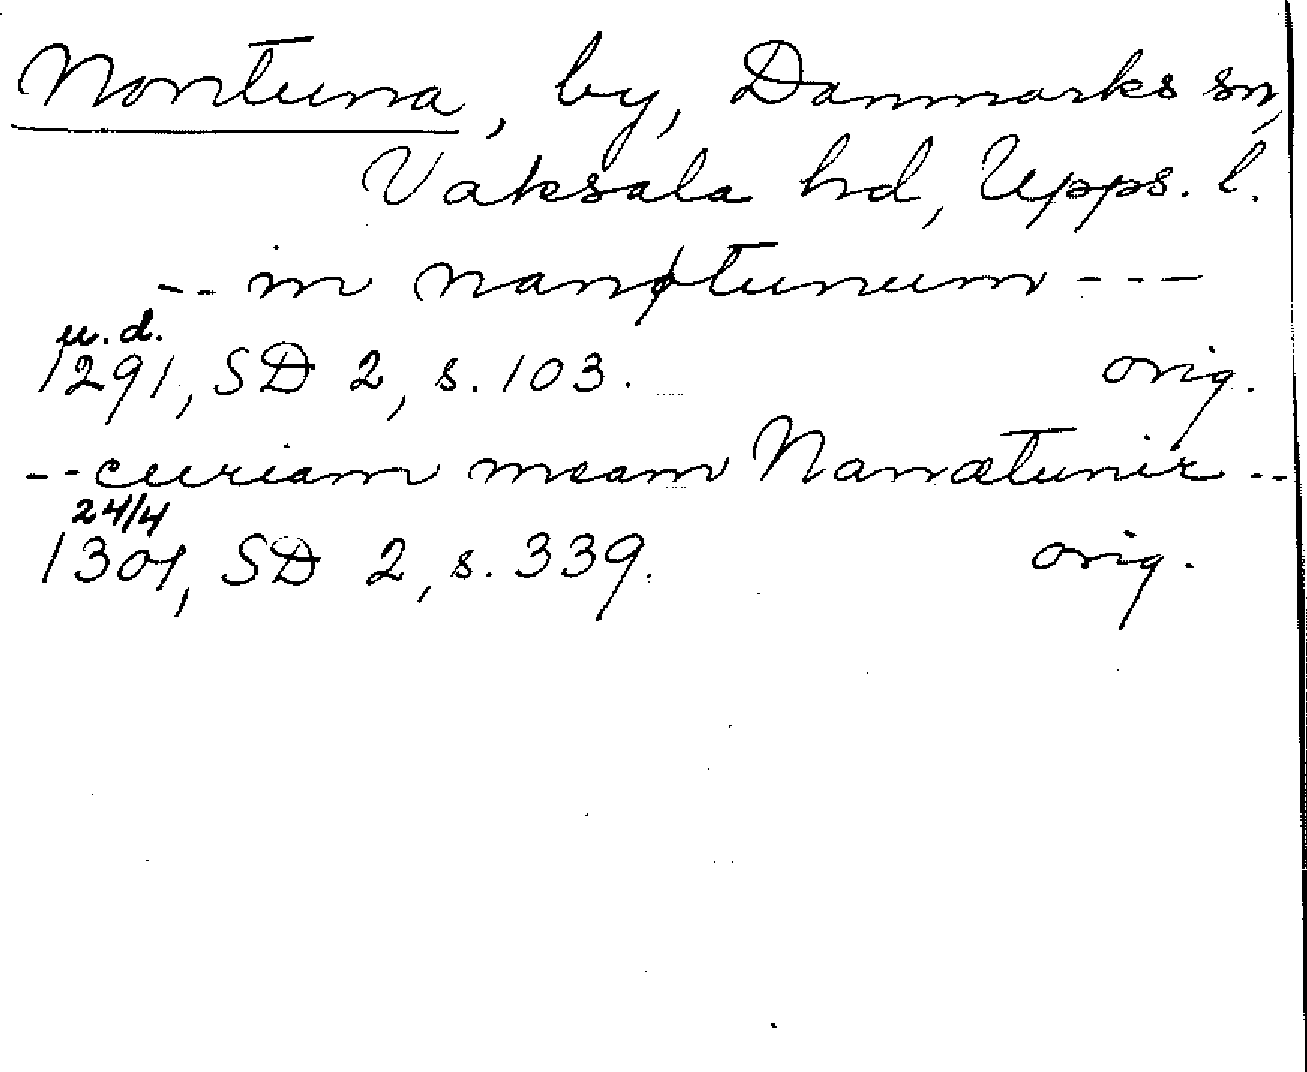 Nontuna, by, Danmarks sn,
Vaksala hd, Upps. l.
-- in nanøtunum ---
u.d.
1291, SD 2, s. 103. orig.
-- curiam meam Nanætunir --
24/4
1301, SD 2, s. 339. orig.